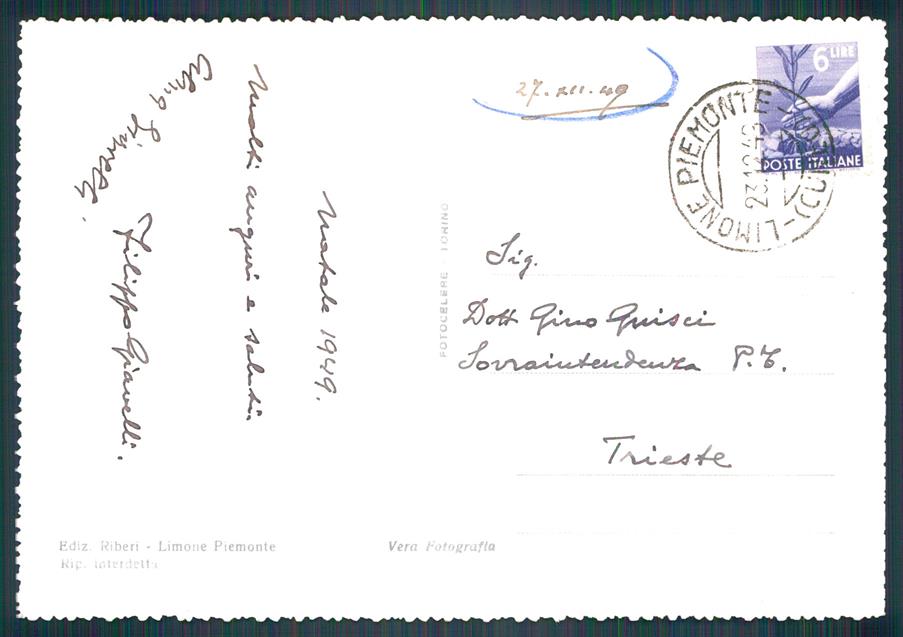 Natale 1949.
Molti auguri e saluti.
Filippo Giavelli.
27.XII.49
6 LIRE
POSTE ITALIANE
LIMONE PIEMONTE - (CUNEO)
23.12.49
Sig.
Dott Gino
Sovraintendenza P.T.
Trieste
FOTOCELERE - TORINO
Ediz. Riberi - Limone Piemonte
Rip. interdetta
Vera Fotografia